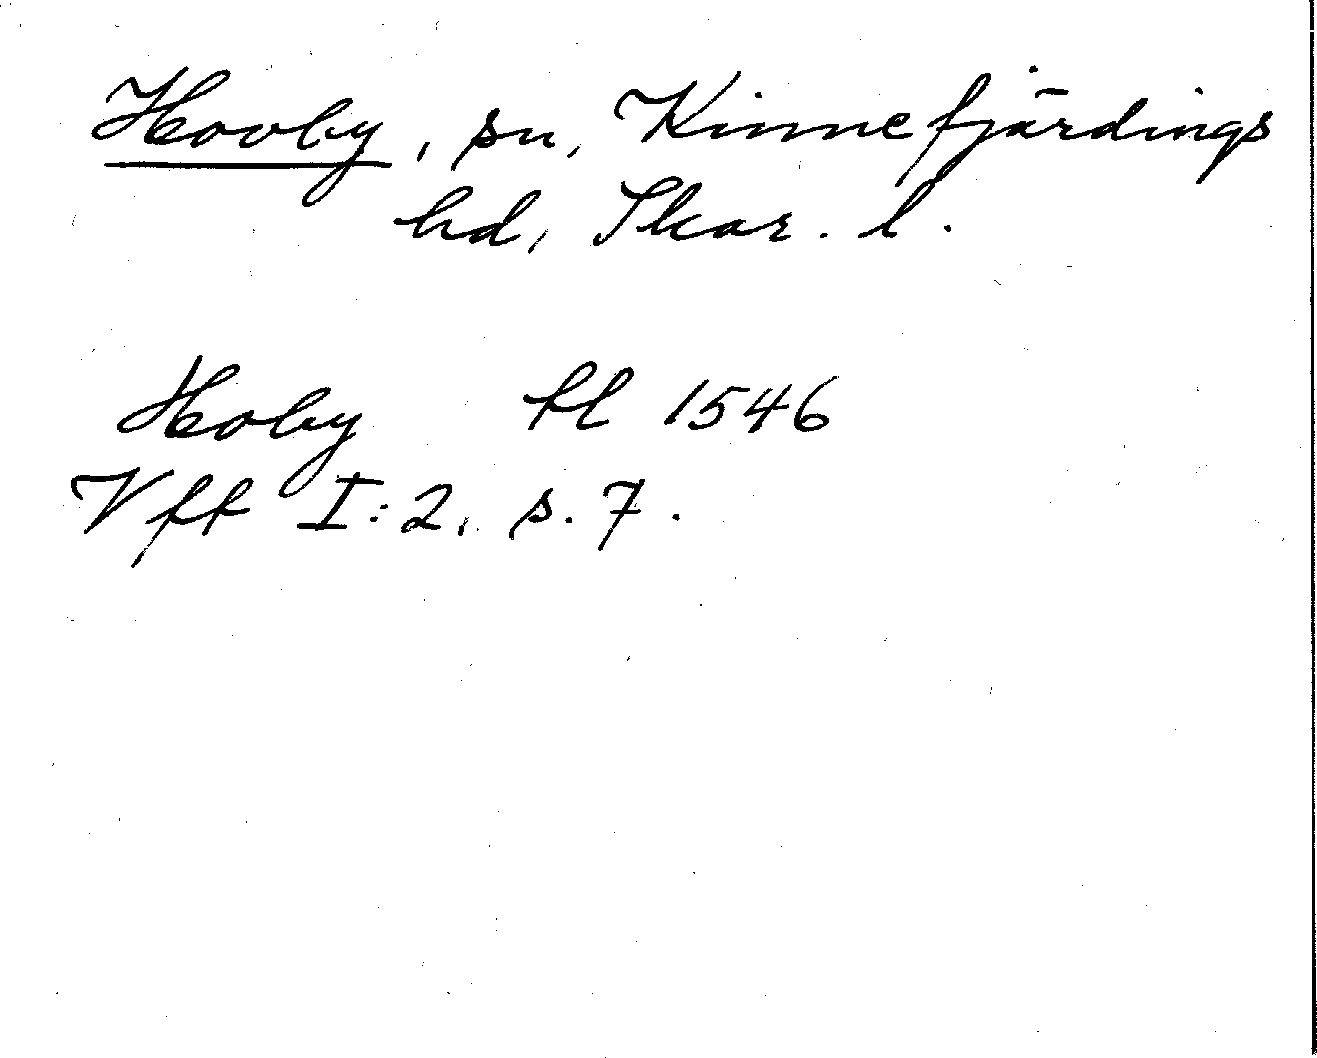 Hovby, sn, Kinnefjärdings
hd, Skar. l.
Hoby kl 1546
Vff I:2, s. 7.